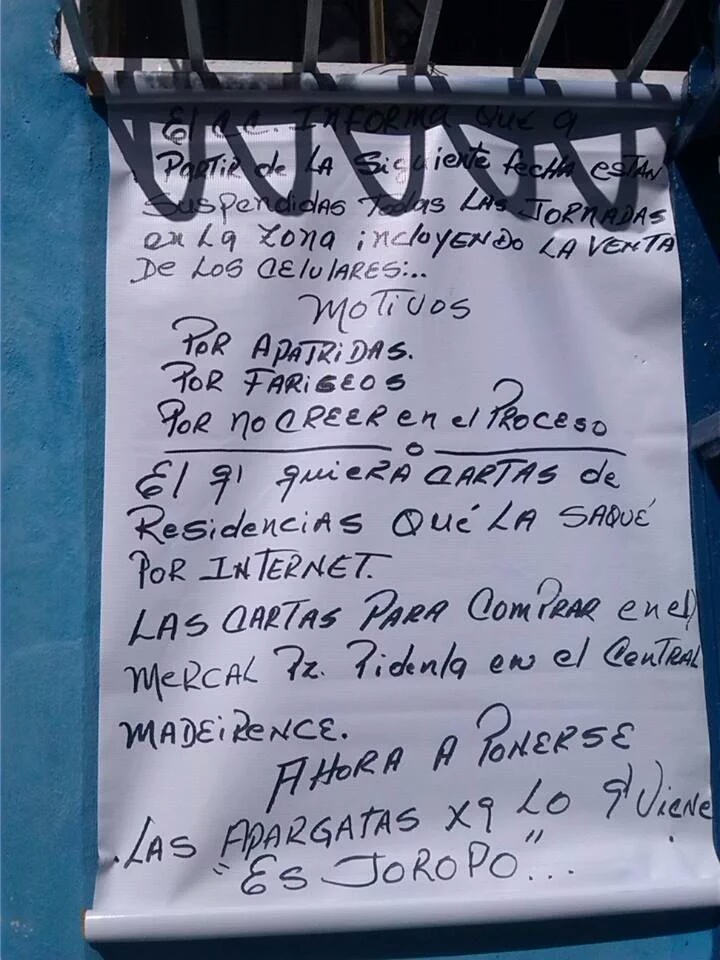 El C.C. INFORMA QUE a
PARTIR de LA Siguiente fecHA ESTAN
SuspendidAS TodAS LAS JORNADAS
en LA ZONA incLUYENDO LA VENTA
De LOS CELULARES:..
MOTIVOS
POR APATRIDAS.
POR FARISEOS
POR no CREER en el PROCESO
El q' quiERA CARTAS de
ResidenciAS QUé LA SAQUÉ
POR INTERNET.
LAS CARTAS PARA COMPRAR en el
MERCAL Pz. Pidanla en el CenTRAL
MADEIRENCE.
AHORA A PONERSE
.LAS APARGATAS xq LO q' Viene
"ES JOROPO"...